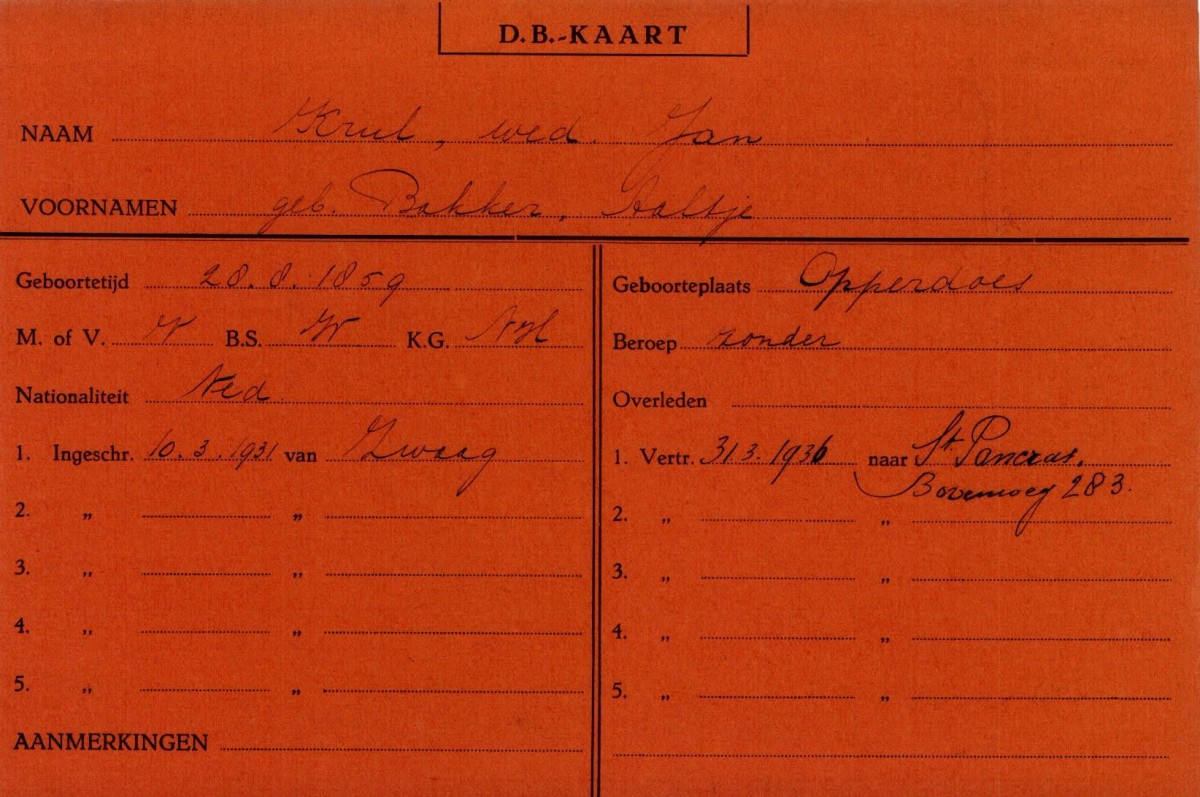 D.B.-KAART
NAAM Krul, wed. Jan
VOORNAMEN geb. Bakker, Aaltje
Geboortetijd 28.8.1859
M. of V. V B.S. W K.G. NH
Nationaliteit Ned.
1. Ingeschr. 10.3.1931 van Zwaag
2. „ „
3. „ „
4. „ „
5. „ „
AANMERKINGEN
Geboorteplaats Opperdoes
Beroep zonder
Overleden
1. Vertr. 31 3. 1936 naar St. Pancras.
Bovenweg 283.
2. „ „
3. „ „
4. „ „
5. „ „